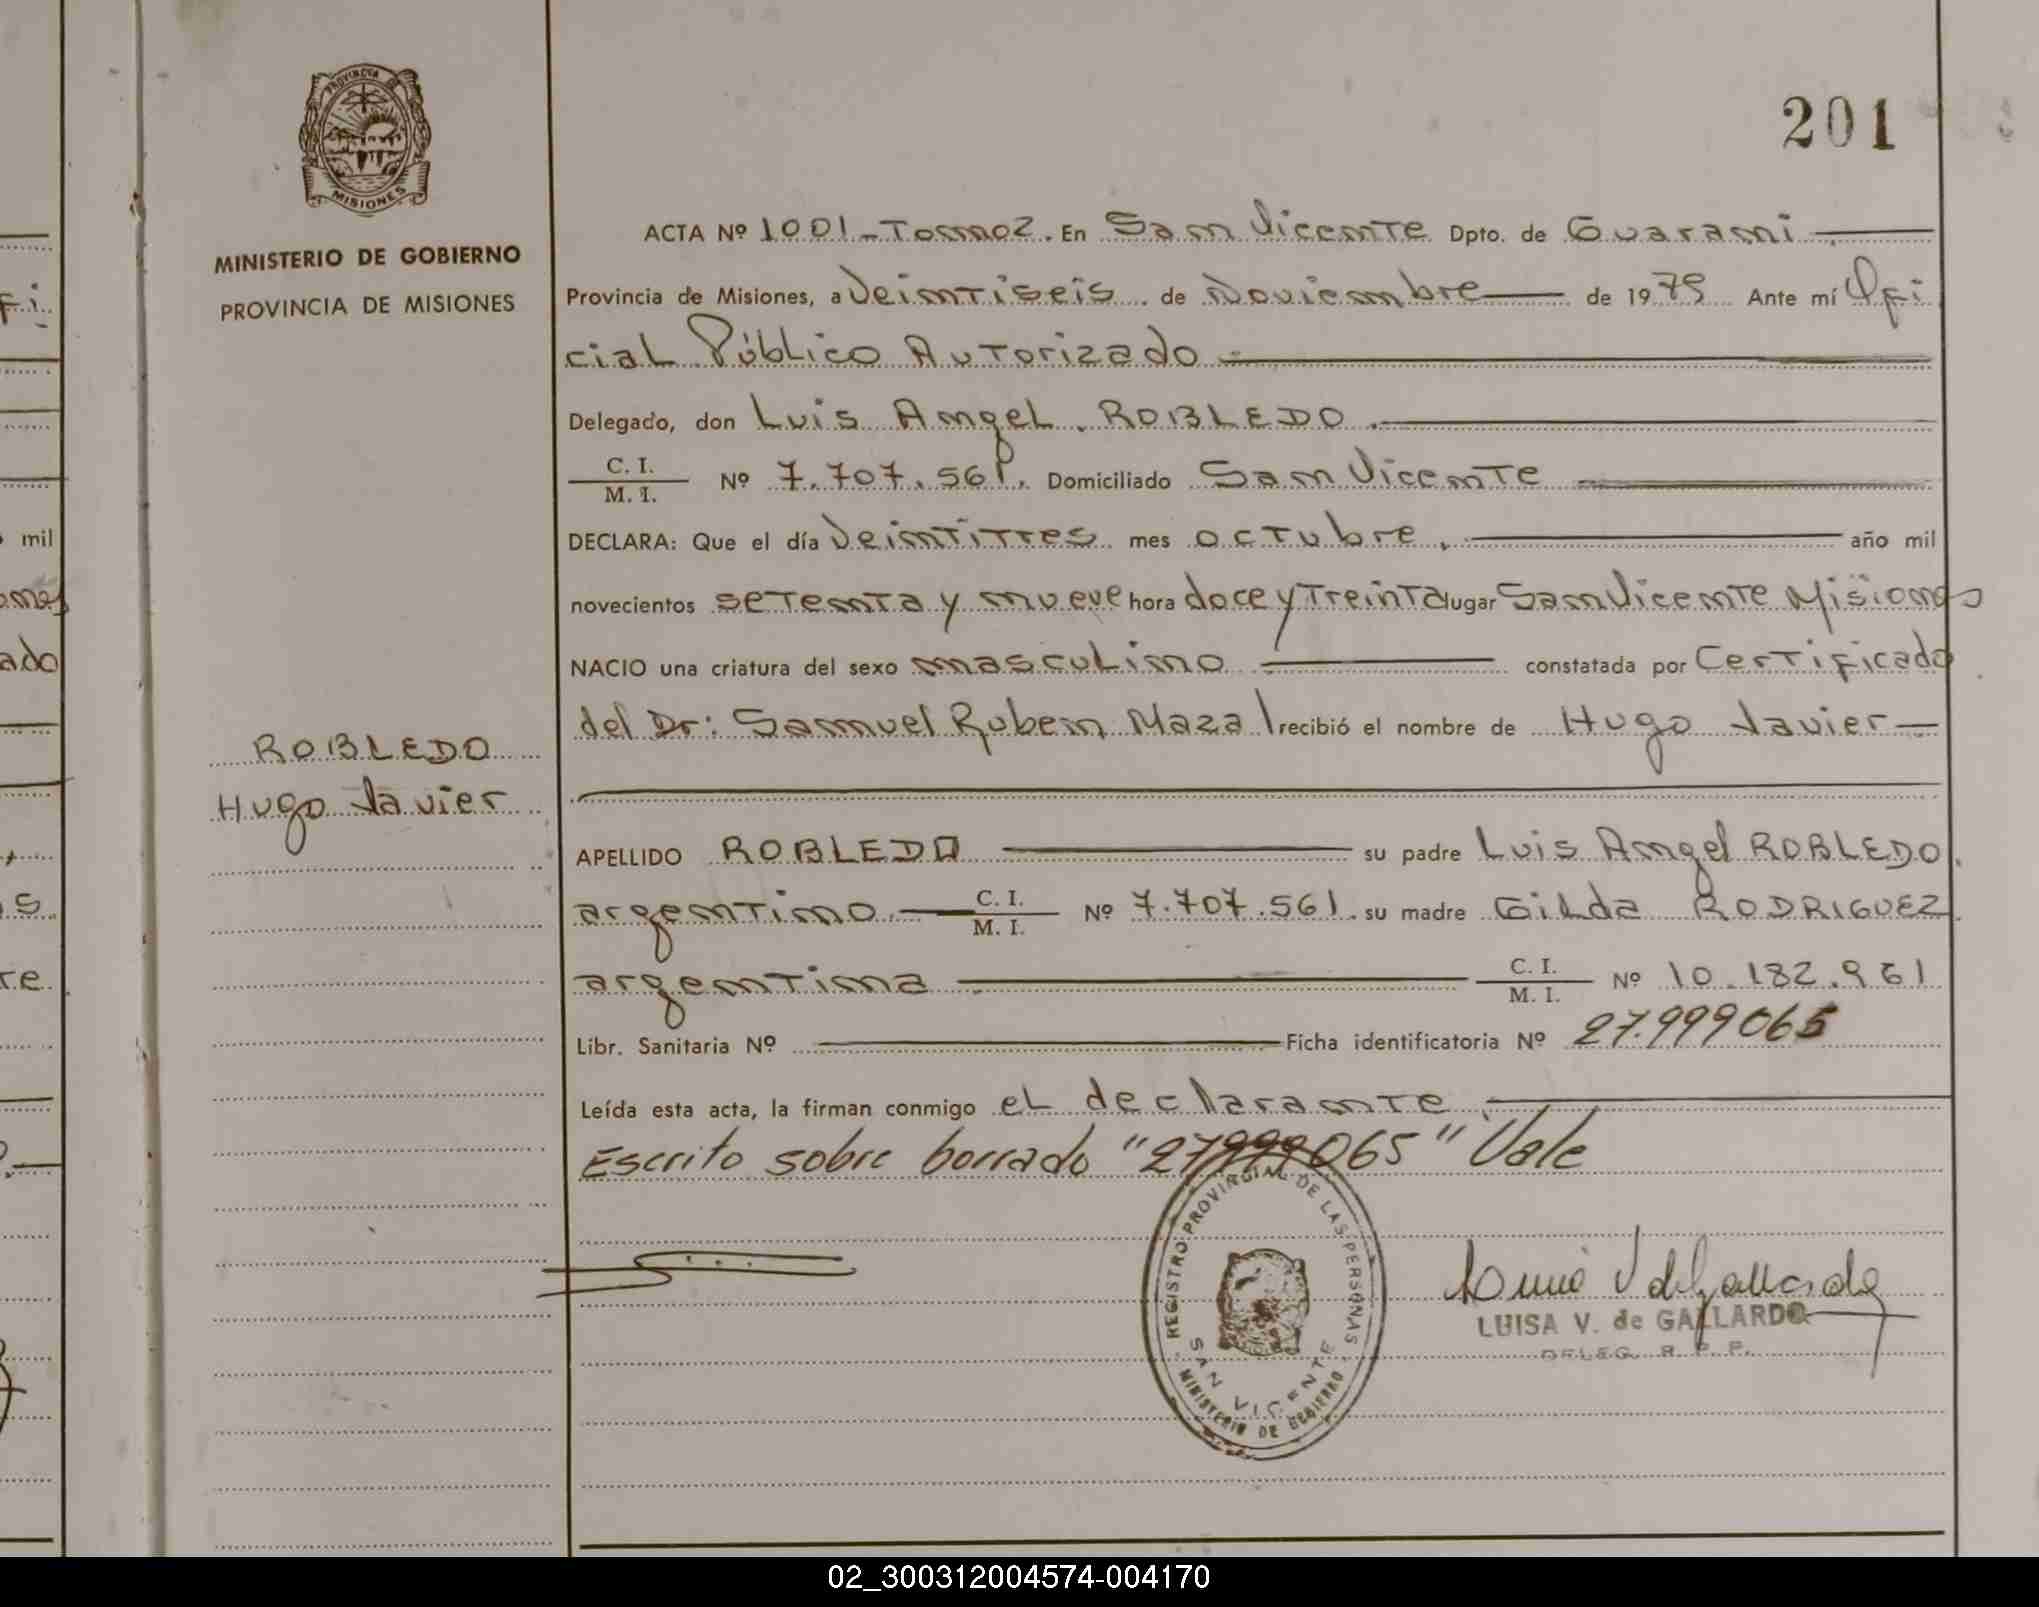 201
PROVINCIA DE
MISIONES
MINISTERIO DE GOBIERNO
PROVINCIA DE MISIONES
ROBLEDO
Hugo Javier
ACTA Nº 1001-Tomo2. En San Vicente Dpto. de Guarani
Provincia de Misiones, a Veintiseis de Noviembre de 1979 Ante mí Ofi
cial Público Autorizado
Delegado, don Luis Angel ROBLEDO
C. I.
M. I. Nº 7.707.561. Domiciliado San Vicente
DECLARA: Que el día Veintitres mes octubre año mil
novecientos setenta y nueve hora doce y treinta lugar San Vicente Misiones
NACIO una criatura del sexo masculino constatada por Certificado
del Dr: Samuel Ruben Mazal recibió el nombre de Hugo Javier
APELLIDO ROBLEDO su padre Luis Angel ROBLEDO
argentino C. I.
M. I. Nº 7.707.561. su madre Gilda RODRIGUEZ
argentina C. I.
M. I. Nº 10.182.961
Libr. Sanitaria Nº Ficha identificatoria Nº 27.999065
Leída esta acta, la firman conmigo el declarante
Escrito sobre borrado "27999065" Vale
REGISTRO PROVINCIAL DE LAS PERSONAS
SAN VICENTE
MINISTERIO DE GOBIERNO
LUISA V. de GALLARDO
DELEG. R. P. P.
mil
ado
02_300312004574-004170